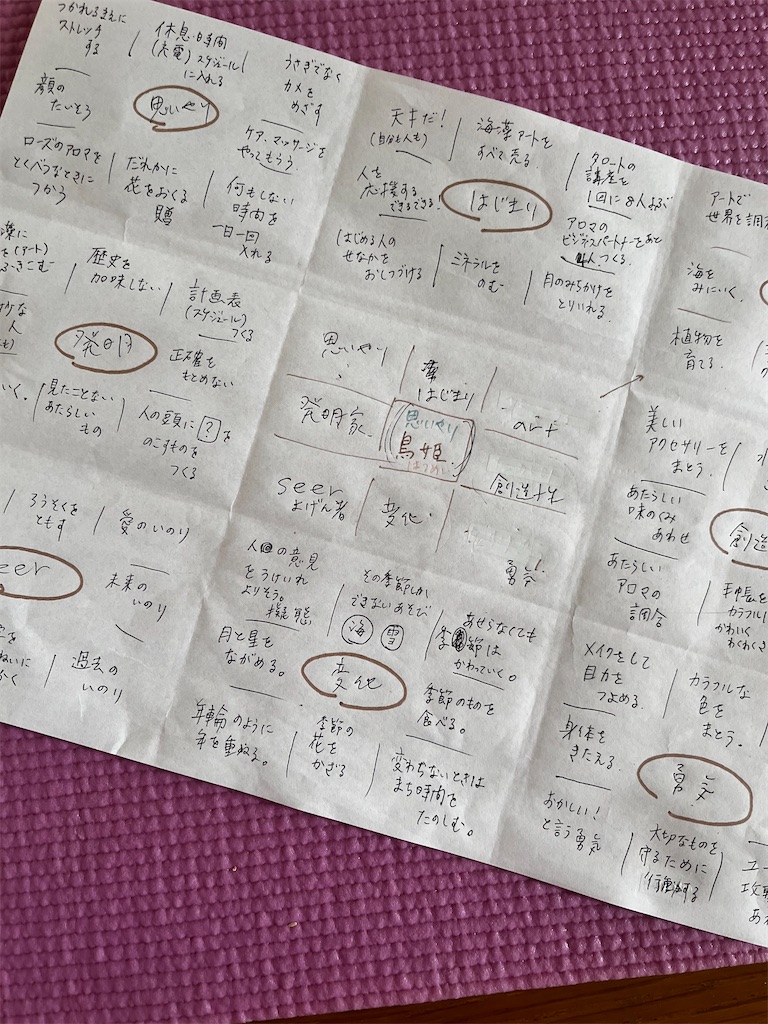 つかれるまえに
ストレッチ
する
休息時間
(充電)スケジュール
に入れる
うさぎでなく
カメを
めざす
顔の
たいそう
思いやり
ケア、マッサージを
やってもらう。
ローズのアロマを
とくべつなときに
つかう
だれかに
花をおくる
贈
何もしない
時間を
一日一回
入れる
天才だ!
(自分も人も)
海藻アートを
すべて売る
タロートの
講座を
1回に8人よぶ
人を
応援する
できるできる!
はじまり
アロマの
ビジネスパートナーをあと
4人つくる。
はじめる人の
せなかを
おしつづける
ミネラルを
のむ
月のみちかけを
とりいれる。
アートで
海を
みにいく。
植物を
育てる。
(アート)
歴史を
加味しない
計画表
(スケジュール)
つくる
発明
正確を
もとめない
いく。
見たことない
あたらしい
もの
人の頭に?を
のこすものを
つくる
思いやり
はじまり
発明家
思いやり
鳥姫
はつめい
art
seer
よげん者
変化
創造性
勇気
美しい
アクセサリーを
まとう。
あたらしい
味のくみ
あわせ
創造
あたらしい
アロマの
調合
手帳を
カラフル
かわいく
わくわく
ろうそくを
ともす
愛のいのり
seer
未来の
いのり
過去の
いのり
人の意見
をうけいれ
よりそう。
擬態
その季節しか
できないあそび
海 雪
あせらなくても
季節は
かわっていく。
月と星を
ながめる。
変化
季節のものを
食べる。
年輪のように
年を重ねる。
季節の
花を
かざる
変わらないときは
まち時間を
たのしむ。
メイクをして
目力を
つよめる。
カラフルな
色を
まとう。
身体を
きたえる。
勇気
おかしい!
と言う勇気
大切なものを
守るために
行動する